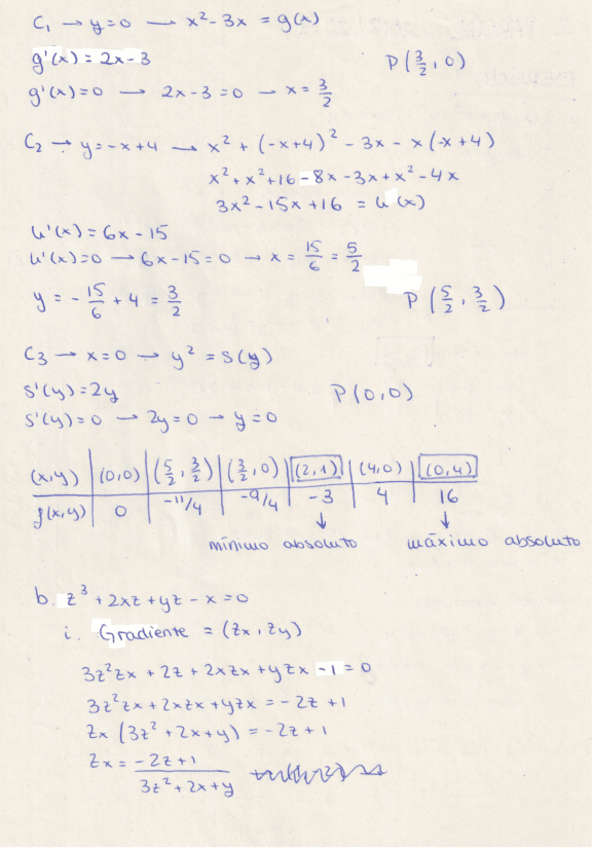 C₁ → y=0 → x²-3x = g(x)
g'(x) = 2x-3 P(3/2, 0)
g'(x)=0 → 2x-3=0 → x=3/2
C₂ → y=-x+4 → x² + (-x+4)² - 3x - x(-x+4)
x²+x²+16-8x-3x+x²-4x
3x²-15x+16 = u(x)
u'(x)=6x-15
u'(x)=0 → 6x-15=0 → x= 15/6 = 5/2
y = - 15/6 + 4 = 3/2 P(5/2, 3/2)
C₃ → x=0 → y² = s(y)
s'(y)=2y P(0,0)
s'(y)=0 → 2y=0 → y=0
(x,y) | (0,0) | (5/2, 3/2) | (3/2, 0) | (2,1) | (4,0) | (0,4)
f(x,y) | 0 | -11/4 | -9/4 | -3 | 4 | 16
↓ ↓
mínimo absoluto máximo absoluto
b. z³+2xz+yz-x=0
i. Gradiente = (zx, zy)
3z²zx + 2z + 2xzx + yzx -1 = 0
3z²zx + 2xzx + yzx = -2z+1
zx (3z²+2x+y) = -2z+1
zx = (-2z+1)/(3z²+2x+y)